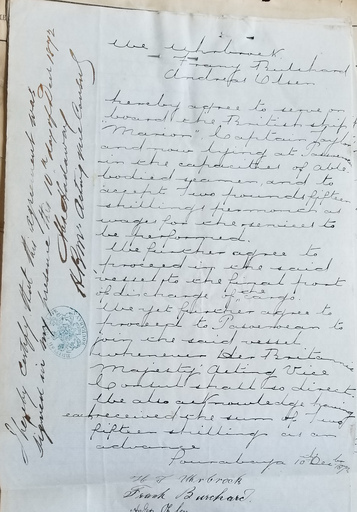 We W. Uhrbrook
Frank Burchard
Andreas Olsen
hereby agree to serve on
board the British ship
"Marion" Captain
and now lying at
in the capacities of able
bodied seamen, and to
accept two pounds fifteen
shillings per month as
wages for the services to
be performed.
We further agree to
proceed in the said
vessel to the final port
of discharge of the cargo.
We yet further agree to
proceed to Pasoeroean to
join the said vessel
whenever Her Britannic
Majesty's Acting Vice
Consul shall so direct.
We also acknowledge having
each received the sum of two
fifteen shillings as an
advance
10th Dec
W Uhrbrook
Frank Burchard
I hereby certify that this agreement was
signed in my presence this 10th day of Dec 1892
Acting Vice Consul